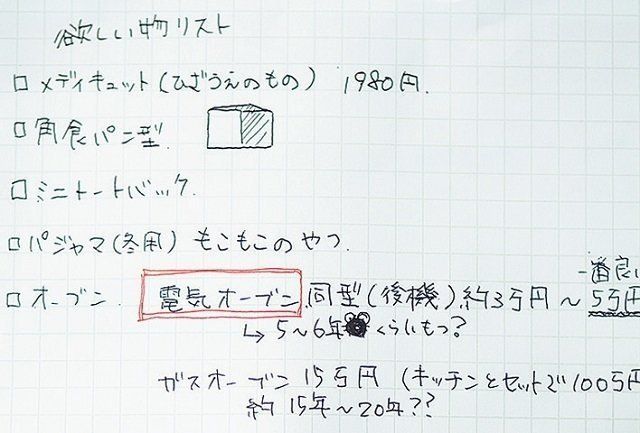 欲しい物リスト
□ メディキュット(ひざうえのもの) 1980円.
□ 角食パン型.
□ ミニトートバック.
□ パジャマ(冬用) もこもこのやつ.
一番良い
□ オーブン. 電気オーブン.同型(後機)約3万円〜5万円
↳ 5〜6年くらいもつ?
ガスオーブン 15万円 (キッチンとセットで100万円
約15年〜20年??